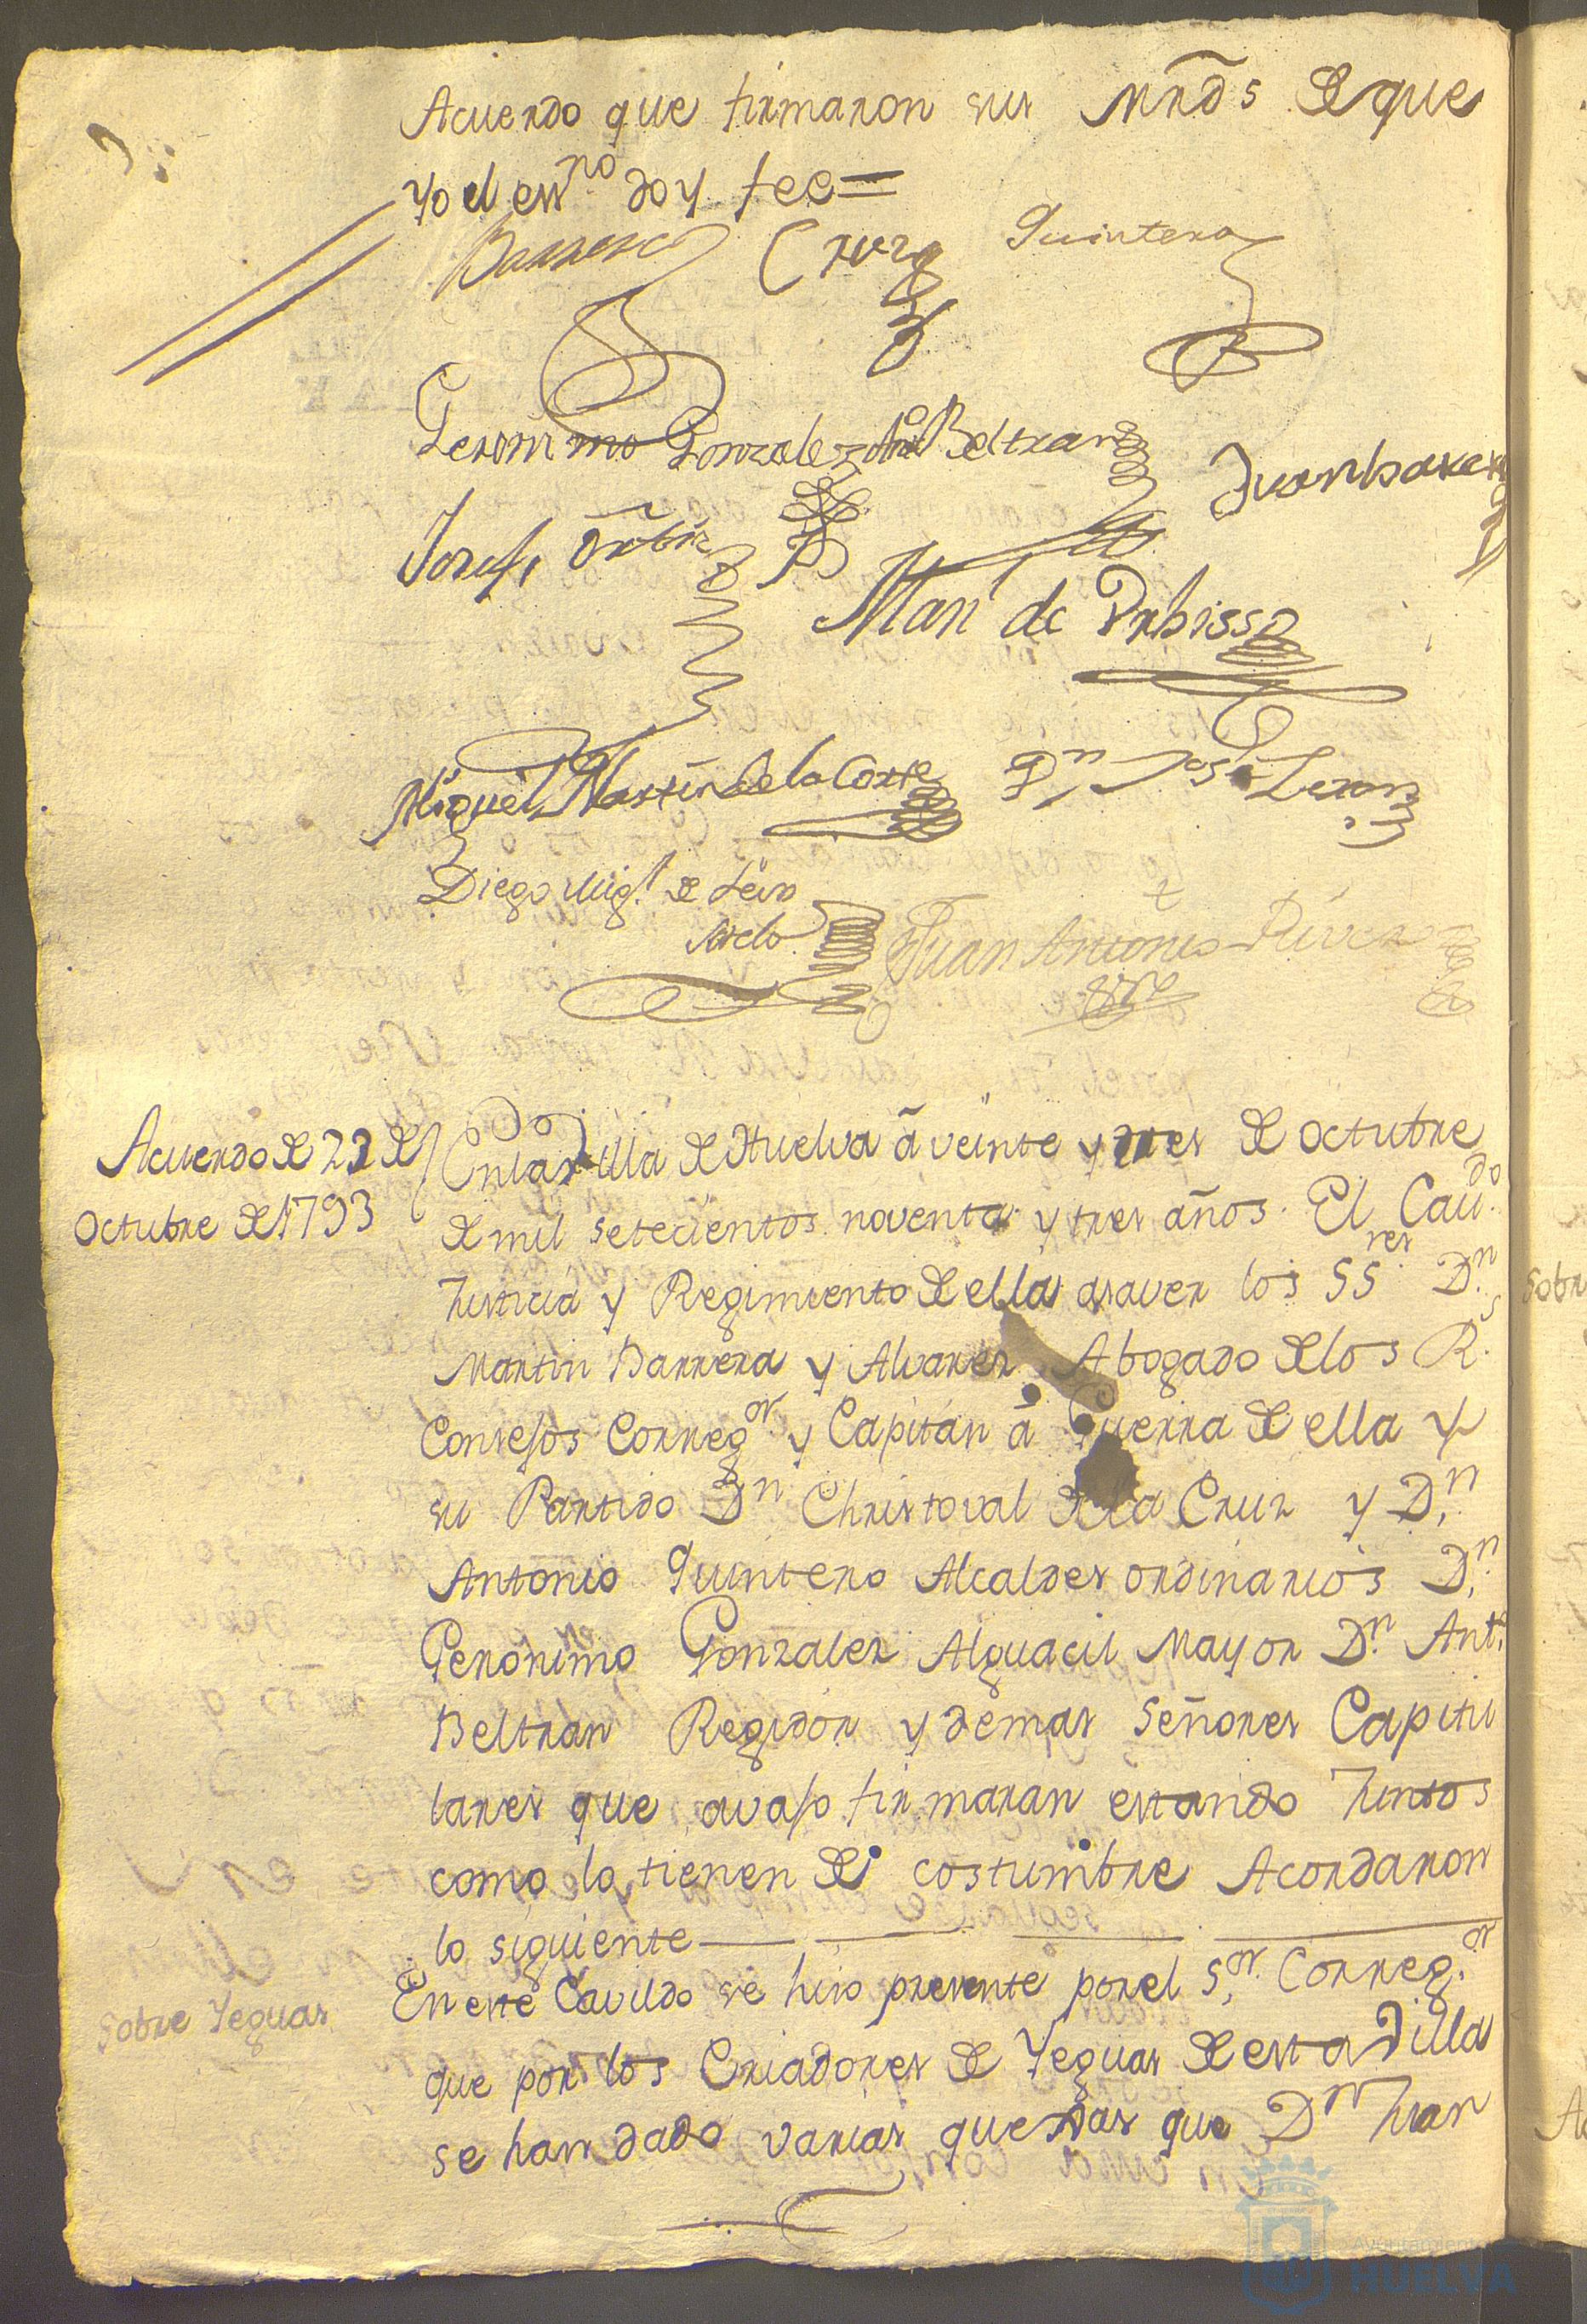 Acuerdo que firmaron sus Mrds. de que
yo el essno doy fee=
Barrera Cruz Quintero
Geronimo Gonzalez Anto Beltran
Juan
Josef Ortiz
Man de
Miguel Martin de la Corte Dn Josf
Diego Migl de
Juan Antonio
Acuerdo de 23 de
Octubre de 1793
En la Villa de Huelva â veinte y tres de Octubre
de mil setecientos noventa y tres años. El Cavdo
Justicia y Regimiento de ella asaver los SSres Dn
Martin Barrera y Alvarez Abogado de los Rs
Consejos Corregor y Capitan â Guerra de ella y
su Partido Dn Christoval de la Cruz y Dn
Antonio Quintero Alcaldes ordinarios Dn
Geronimo Gonzalez Alguacil Mayor Dn Anto
Beltran Regidor y demas Señores Capitu
lares que avajo firmaran estando Juntos
como lo tienen de costumbre Acordaron
lo siguiente
Sobre Yeguas
En este Cavildo se hiso presente por el Sor Corregor
que por los Criadores de Yeguas de esta Villa
se han dado varias quexas que Dn Juan
Sobre
Ayuntamiento
HUELVA